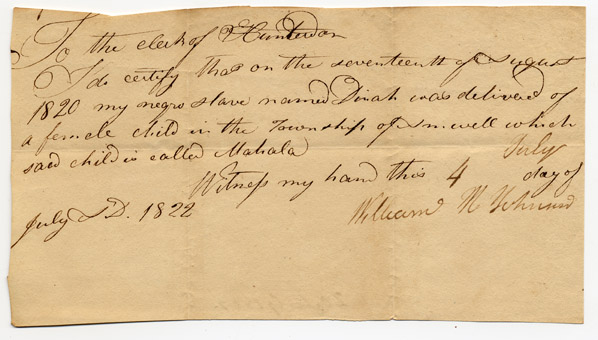 To the clerk of Hunterdon
I do certify that on the seventeenth of August
1820 my negro slave named Dinah was delivered of
a female child in the Township of Amwell which
said child is called Mahala
July
Witness my hand this 4 day of
July AD. 1822
William N